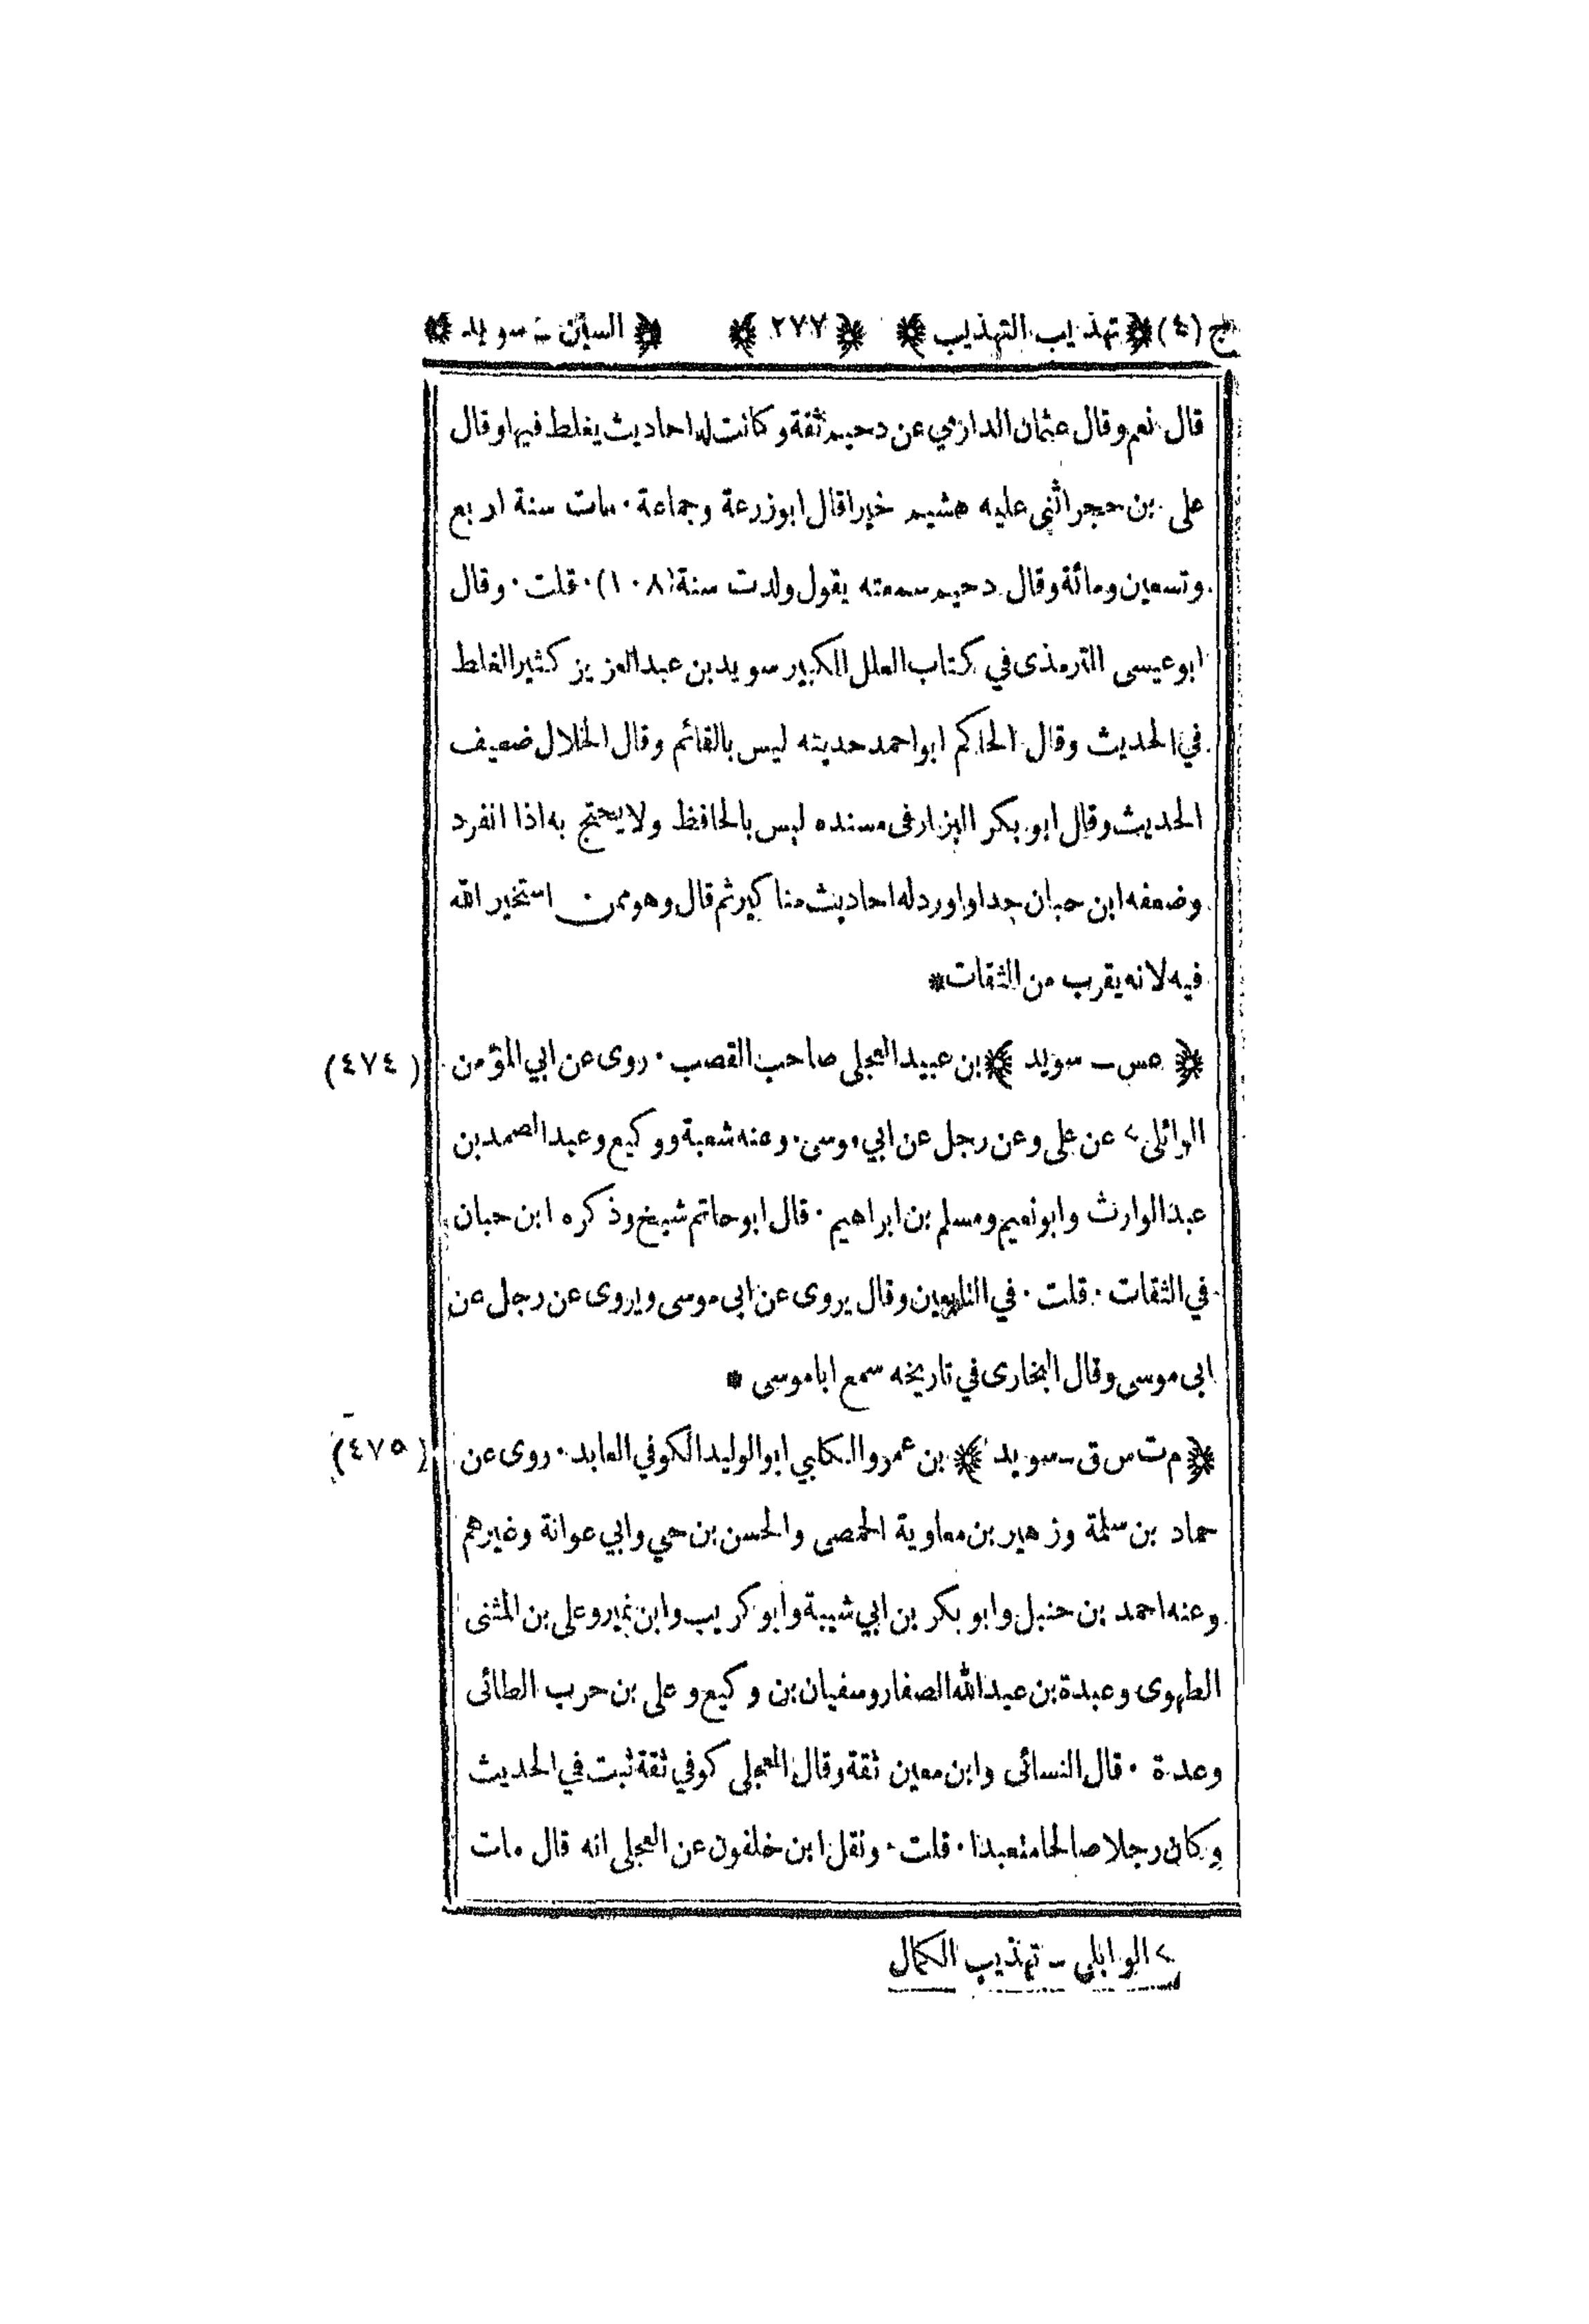 ج (٤) ﴿ تهذيب التهذيب ﴾ ﴿ ٢٧٧ ﴾ ﴿ السين - سويد ﴾
قال نعم وقال عثمان الدارمي عن دحيم ثقة وكانت له احاديث يغلط فيها وقال
على بن حجر اثنى عليه هشيم خيرا قال ابوزرعة وجماعة · مات سنة اربع
وتسعين ومائة وقال دحيم سمعته يقول ولدت سنة (١٠٨) · قلت · وقال
ابوعيسى الترمذى في كتاب العلل الكبير سويد بن عبدالعزيز كثير الغلط
في الحديث وقال الحاكم ابواحمد حديثه ليس بالقائم وقال الخلال ضعيف
الحديث وقال ابو بكر البزار فى مسنده ليس بالحافظ ولا يحتج به اذا انفرد
وضعفه ابن حبان جدا واورد له احاديث مناكير ثم قال وهو ممن استخير الله
فيه لانه يقرب من الثقات *
﴿ عس - سويد ﴾ بن عبيد العجلى صاحب القصب · روى عن ابي المؤمن (٤٧٤)
الوائلى > عن على وعن رجل عن ابي موسى · وعنه شعبة ووكيع وعبد الصمد بن
عبد الوارث وابونعيم ومسلم بن ابراهيم · قال ابوحاتم شيخ وذكره ابن حبان
في الثقات · قلت · في التابعين وقال يروى عن ابى موسى ويروى عن رجل عن
ابى موسى وقال البخارى في تاريخه سمع اباموسى *
﴿ م ت س ق - سويد ﴾ بن عمرو الكلبي ابوالوليد الكوفي العابد · روى عن (٤٧٥)
حماد بن سلمة وزهير بن معاوية الحمصى والحسن بن حي وابي عوانة وغيرهم
وعنه احمد بن حنبل وابو بكر بن ابي شيبة وابوكريب وابن نمير وعلى بن المثنى
الطهوى وعبدة بن عبدالله الصفار وسفيان بن وكيع وعلى بن حرب الطائى
وعدة · قال النسائى وابن معين ثقة وقال العجلى كوفي ثقة ثبت في الحديث
وكان رجلا صالحا متعبدا · قلت · ونقل ابن خلفون عن العجلى انه قال مات
> الوابلى - تهذيب الكمال